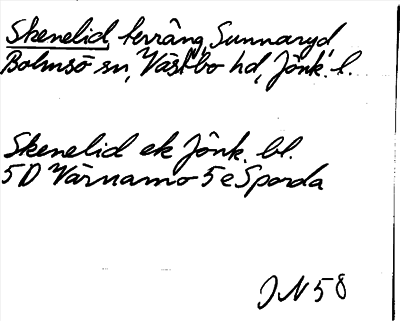 Skenelid, terräng, Sunnaryd,
Bolmsö sn, Västbo hd, Jönk. l.
Skenelid ek Jönk. bl.
5D Värnamo 5e Sporda
JN 58